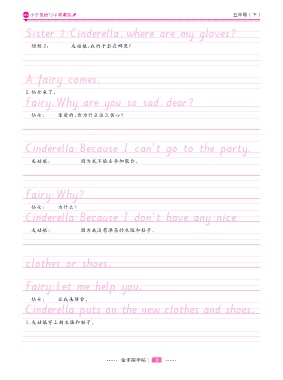 小学英语写字课课练
五年级(下)
Sister 2: Cinderella, where are my gloves?
姐姐2: 灰姑娘,我的手套在哪里?
A fairy comes.
2. 仙女来了。
Fairy: Why are you so sad, dear?
仙女: 亲爱的,你为什么这么伤心?
Cinderella: Because I can't go to the party.
灰姑娘: 因为我不能去参加聚会。
Fairy: Why?
仙女: 为什么?
Cinderella: Because I don't have any nice
灰姑娘: 因为我没有漂亮的衣服和鞋子。
clothes or shoes.
Fairy: Let me help you.
仙女: 让我来帮你。
Cinderella puts on the new clothes and shoes.
3. 灰姑娘穿上新衣服和鞋子。